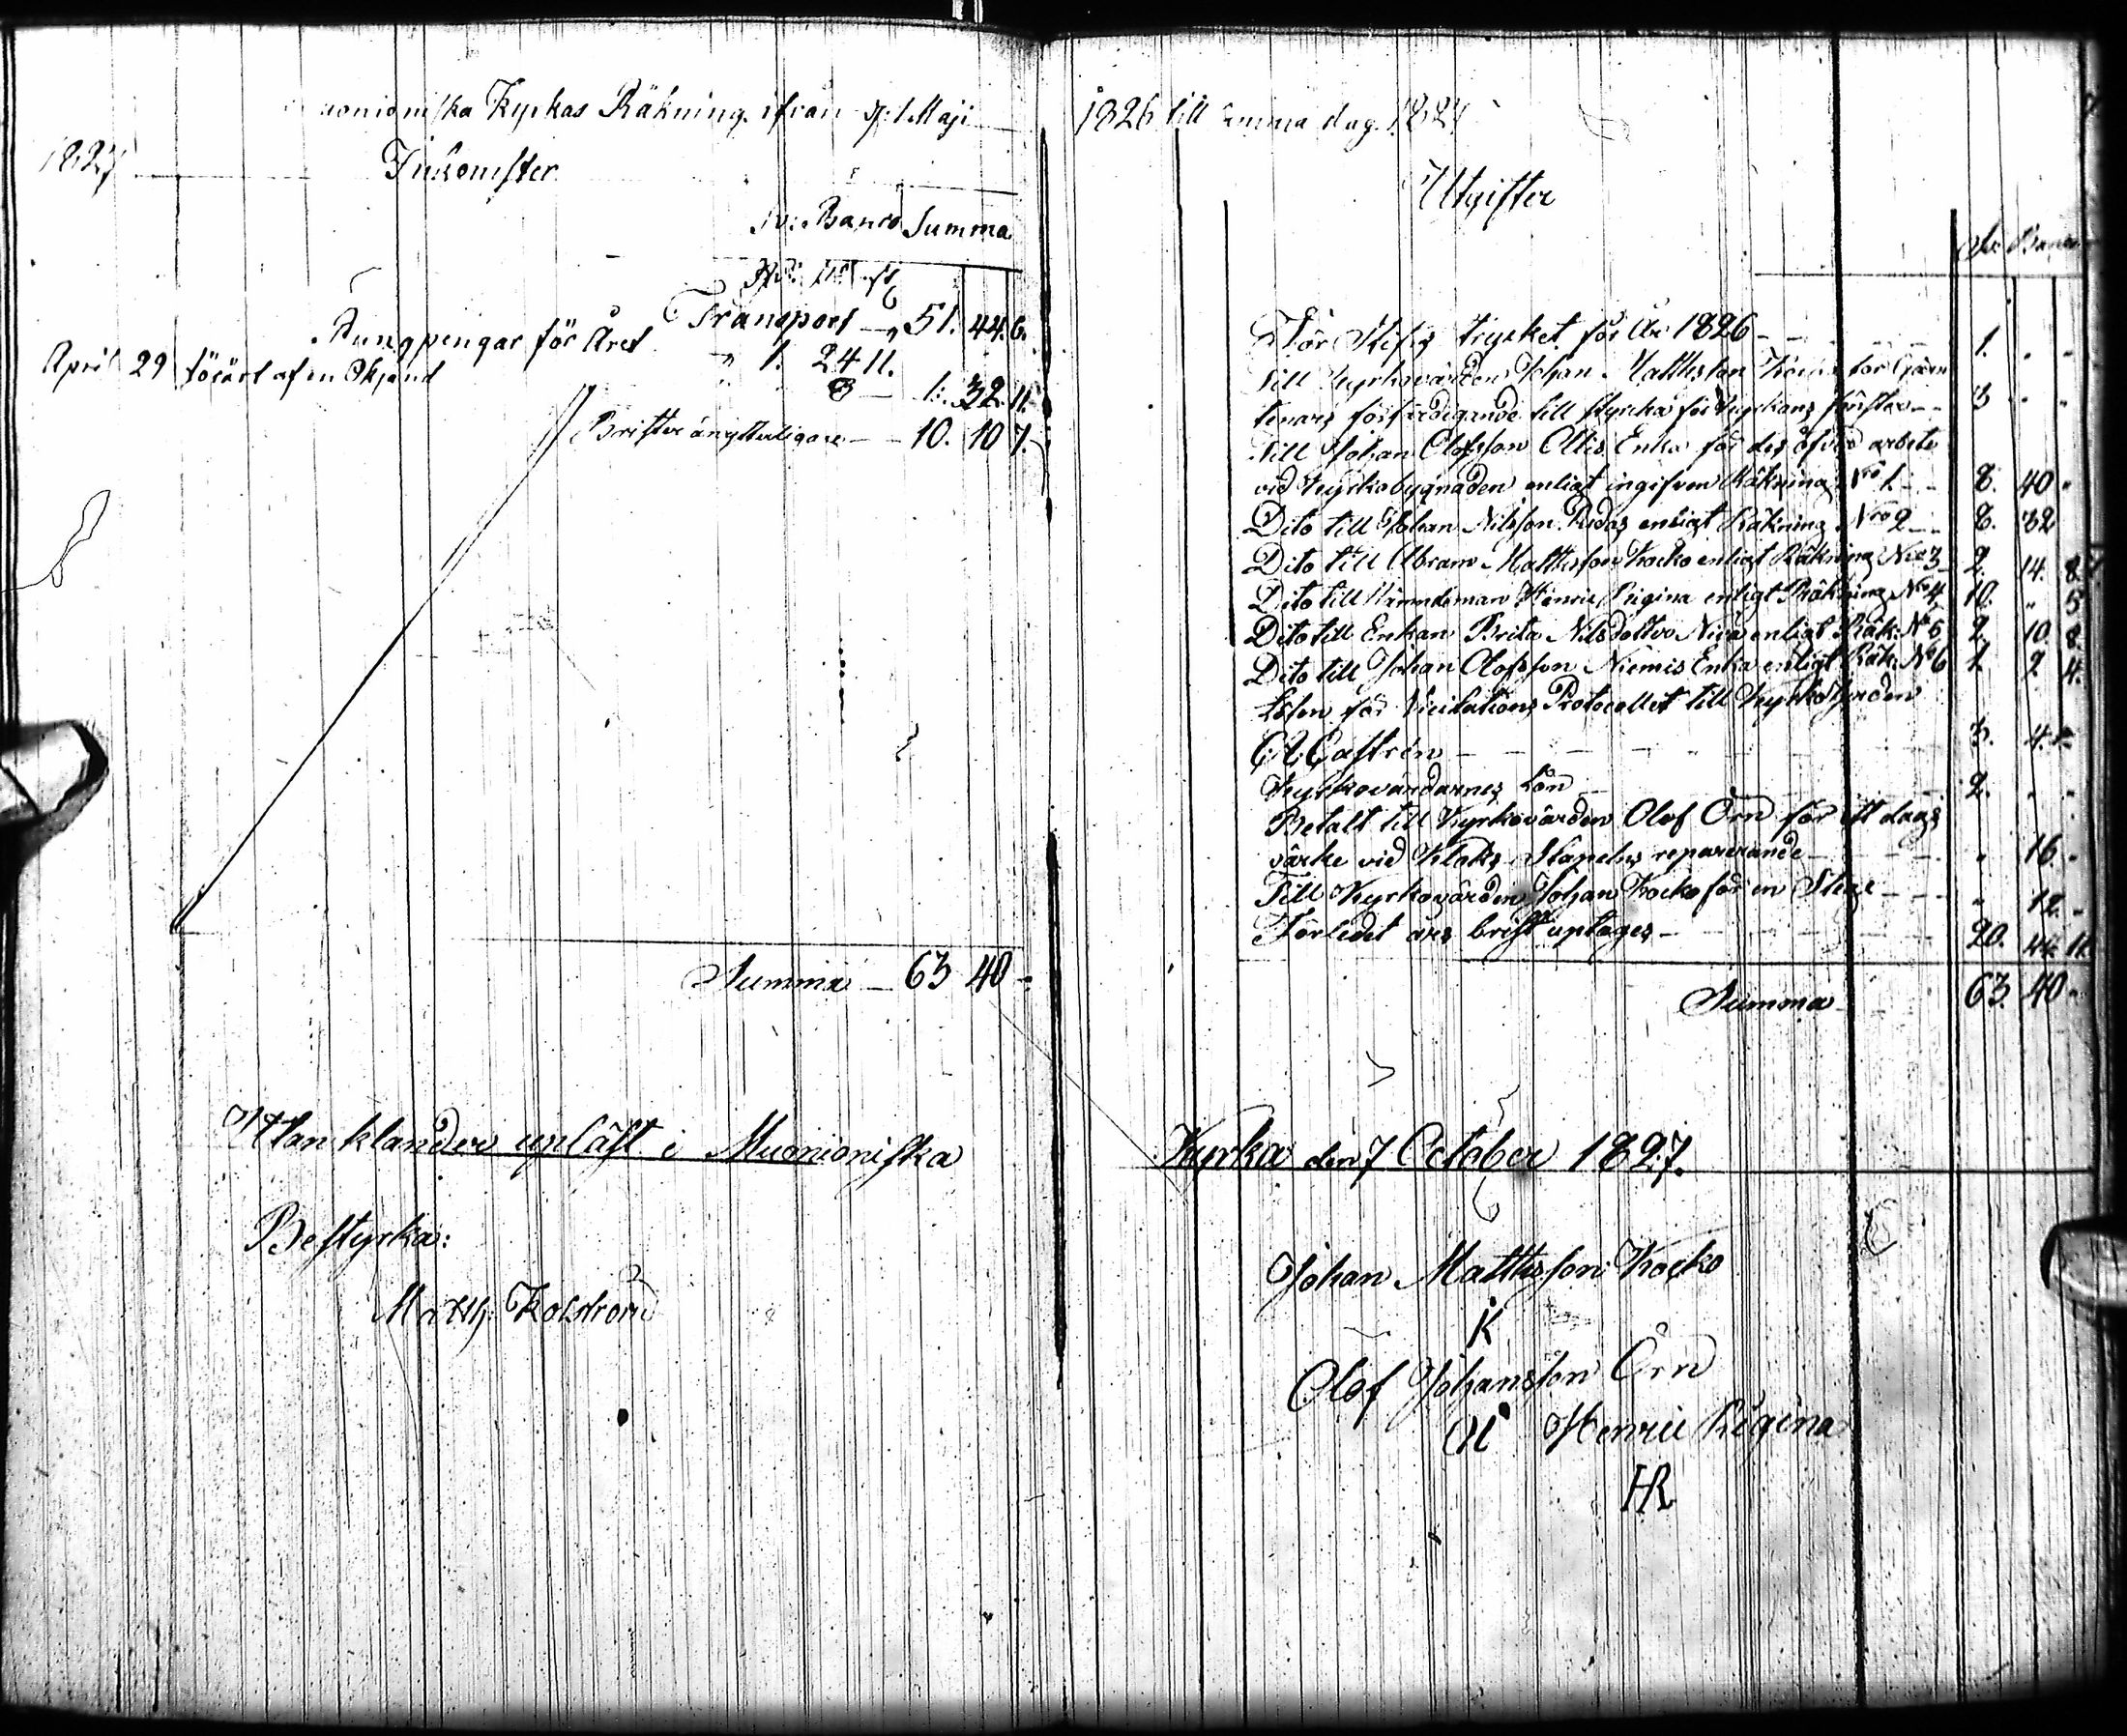 uonioniska Kyrkas Räkning ifrån d: 1 Maji
1827
Inkomster
Sv: Banco Summa
Rd: sk. rst
Transport — " 51. 44. 6.
Ringpengar för Året " 1. 24 11.
April 29 förärt af en Okjänd 8 — 1. 32. 11.
Brister ånytterligare — 10. 10 7.
Summa — 63 40 -
Utan klander upläst i Muonioniska
Bestyrka:
Matth: Kolström
1826 till samma dag 1827
Utgifter
Sv: Banco
För Stifts trycket för År 1826 - 1. " "
Till Kyrkovärden Johan Matthsson för
förfärdigande till styrcka för Kyrkans fönster - 3 " "
Till Johan Olofsson Ollis Enka för des arbete
vid Kyrkobygnaden enligt ingifven Räkning Nro 1 - 8. 40 "
Dito till Johan Nilsson enligt Räkning Nro 2 - 8. 32
Dito till Abram Matthsson Kocko enligt Räkning Nro 3 2. 14. 8.
Dito till Nämndeman Henric Regina enligt Räkning No 4 10. " 5
Dito till Enkan Brita Nilsdotter Niva enligt Räk: No 5 2. 10. 8.
Dito till Johan Olofsson Niemis Enka enligt Räk: No 6 1. 2 4.
Lösen för Visitations Protocollet till Kyrkoherden
C: A: Castrén - 3. 4. "
Kyrkovärdarnes Lön - 2. " "
Betalt till Kyrkovärden Olof Örn för ett dags
värke vid Klock Stapelns reparerande " 16. "
Till Kyrkovärden Johan Kocko för en Stege - " 12. "
Förledet års brist uptages - 20. 44. 11.
Summa 63. 40 "
Kyrka den 7 October 1827.
Johan Matthsson Kocko
K
Olof Johansson Örn
Henric Regina
HR